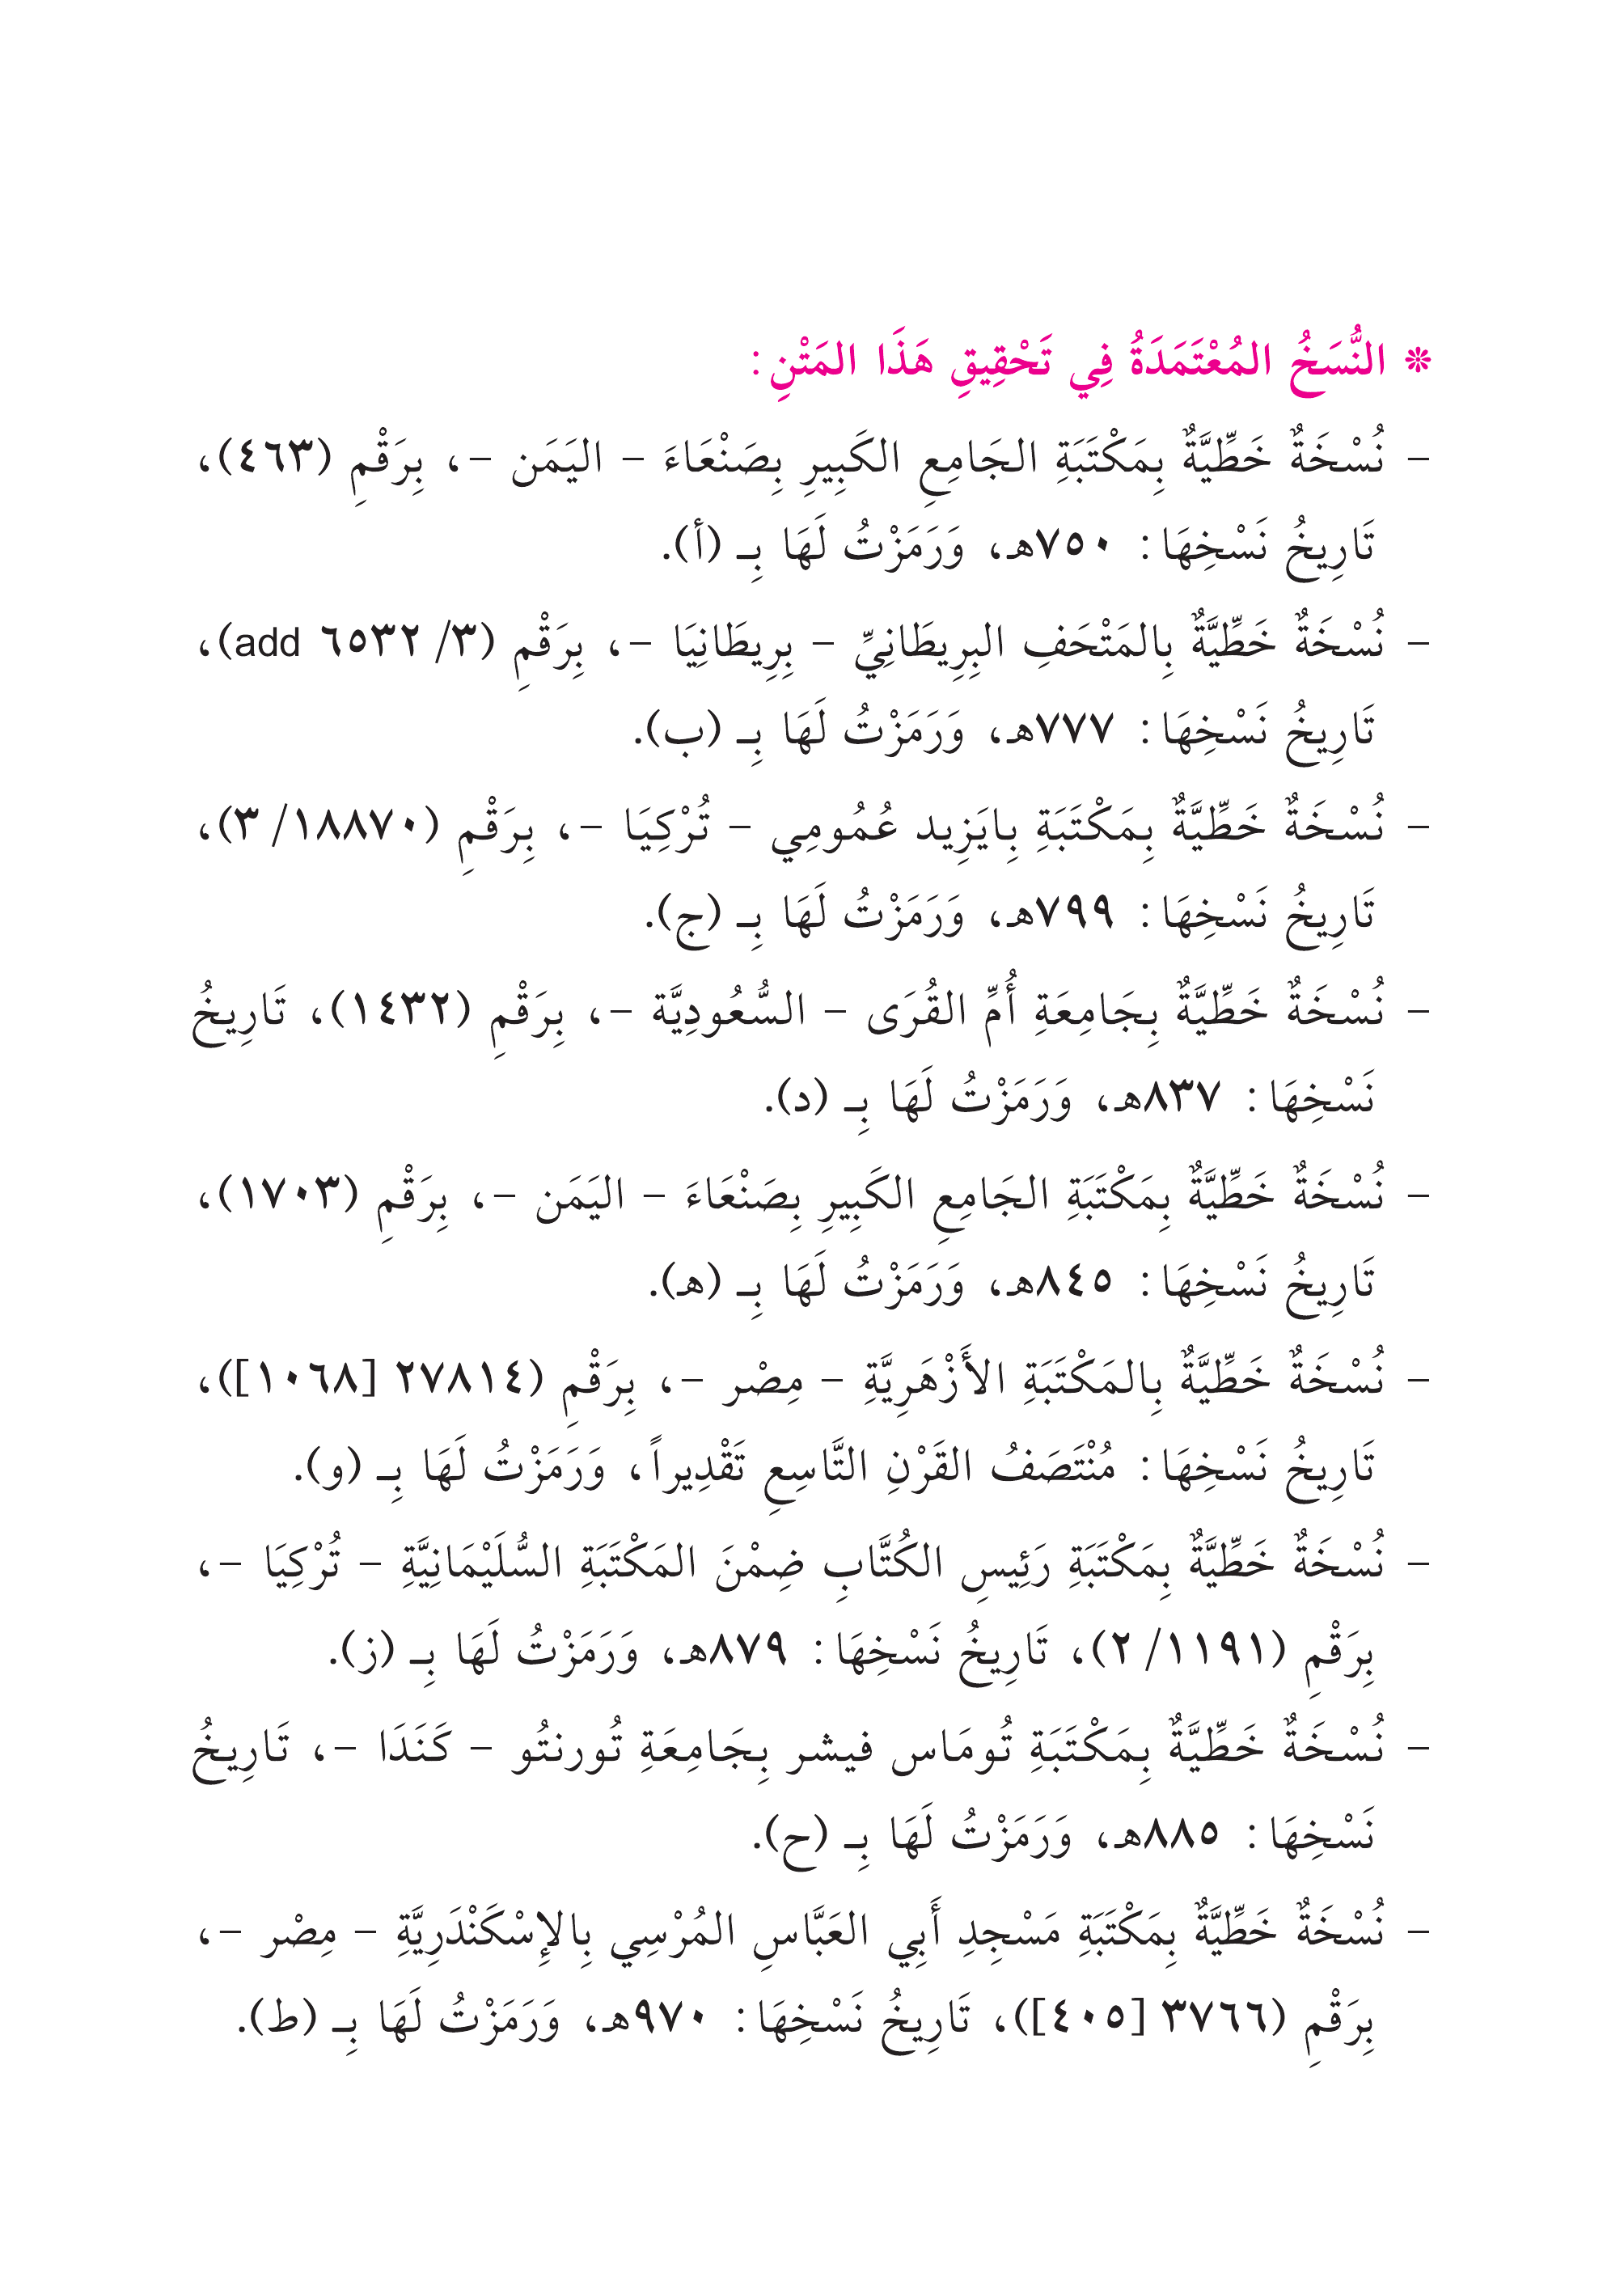 * النُّسَخُ المُعْتَمَدَةُ فِي تَحْقِيقِ هَذَا المَتْنِ:
- نُسْخَةٌ خَطِّيَّةٌ بِمَكْتَبَةِ الجَامِعِ الكَبِيرِ بِصَنْعَاءَ - اليَمَن -، بِرَقْمِ (٤٦٣)،
تَارِيخُ نَسْخِهَا: ٧٥٠هـ، وَرَمَزْتُ لَهَا بِـ (أ).
- نُسْخَةٌ خَطِّيَّةٌ بِالمَتْحَفِ البِرِيطَانِيِّ - بِرِيطَانِيَا -، بِرَقْمِ (٣/ ٦٥٣٢ add)،
تَارِيخُ نَسْخِهَا: ٧٧٧هـ، وَرَمَزْتُ لَهَا بِـ (ب).
- نُسْخَةٌ خَطِّيَّةٌ بِمَكْتَبَةِ بِايَزِيد عُمُومِي - تُرْكِيَا -، بِرَقْمِ (١٨٨٧٠/ ٣)،
تَارِيخُ نَسْخِهَا: ٧٩٩هـ، وَرَمَزْتُ لَهَا بِـ (ج).
- نُسْخَةٌ خَطِّيَّةٌ بِجَامِعَةِ أُمِّ القُرَى - السُّعُودِيَّة -، بِرَقْمِ (١٤٣٢)، تَارِيخُ
نَسْخِهَا: ٨٣٧هـ، وَرَمَزْتُ لَهَا بِـ (د).
- نُسْخَةٌ خَطِّيَّةٌ بِمَكْتَبَةِ الجَامِعِ الكَبِيرِ بِصَنْعَاءَ - اليَمَن -، بِرَقْمِ (١٧٠٣)،
تَارِيخُ نَسْخِهَا: ٨٤٥هـ، وَرَمَزْتُ لَهَا بِـ (هـ).
- نُسْخَةٌ خَطِّيَّةٌ بِالمَكْتَبَةِ الأَزْهَرِيَّةِ - مِصْر -، بِرَقْمِ (٢٧٨١٤ [١٠٦٨])،
تَارِيخُ نَسْخِهَا: مُنْتَصَفُ القَرْنِ التَّاسِعِ تَقْدِيراً، وَرَمَزْتُ لَهَا بِـ (و).
- نُسْخَةٌ خَطِّيَّةٌ بِمَكْتَبَةِ رَئِيسِ الكُتَّابِ ضِمْنَ المَكْتَبَةِ السُّلَيْمَانِيَّةِ - تُرْكِيَا -،
بِرَقْمِ (١١٩١/ ٢)، تَارِيخُ نَسْخِهَا: ٨٧٩هـ، وَرَمَزْتُ لَهَا بِـ (ز).
- نُسْخَةٌ خَطِّيَّةٌ بِمَكْتَبَةِ تُومَاس فيشر بِجَامِعَةِ تُورنتُو - كَنَدَا -، تَارِيخُ
نَسْخِهَا: ٨٨٥هـ، وَرَمَزْتُ لَهَا بِـ (ح).
- نُسْخَةٌ خَطِّيَّةٌ بِمَكْتَبَةِ مَسْجِدِ أَبِي العَبَّاسِ المُرْسِي بِالإِسْكَنْدَرِيَّةِ - مِصْر -،
بِرَقْمِ (٣٧٦٦ [٤٠٥])، تَارِيخُ نَسْخِهَا: ٩٧٠هـ، وَرَمَزْتُ لَهَا بِـ (ط).